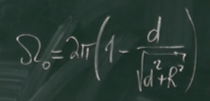 Ω₀ = 2π(1 - d/√(d² + R²))